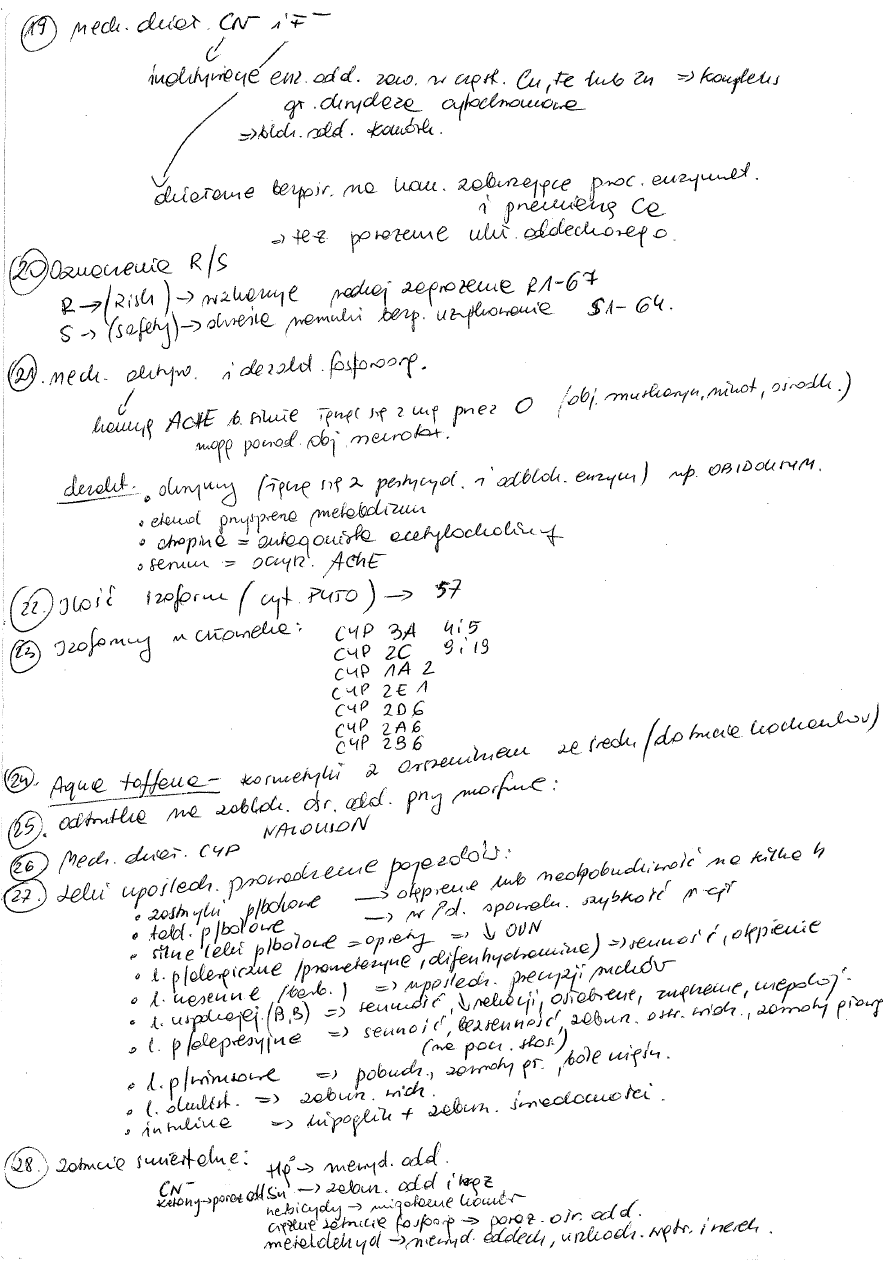 19) Mech. dział. CN⁻ i F⁻
inaktywacje enz. odd. zaw. w cząst. Cu, Fe lub Zn ⇒ kompleks
gr. oksydaza cytochromowa
⇒ blok. odd. komórk.
działanie bezpośr. na kom. zaburzające proc. enzymat.
i przemianę Ca
⇒ też porażenie ukł. oddechowego.
20) Oznaczenia R/S
R → (Risk) → wskazuje rodzaj zagrożenia R1-67
S → (safety) → określa warunki bezp. użytkowania S1-64.
21. Mech. aktyw. i dezakt. fosforoorg.
hamują AChE b. silnie łącząc się z nią przez O (obj. muskaryn, nikot, ośrodk.)
mogą powod. obj. neurotox.
dezakt. • oksymy (łączą się z pestycyd. i odblok. enzym) np. OBIDOKSYM.
• etanol przyspiesza metabolizm
• atropina = antagonista acetylocholiny
• serum = oczyszcz. AChE
22. Ilość izoform (cyt. P450) → 57
23 Izoformy u człowieka: CYP 3A 4 i 5
CYP 2C 9 i 19
CYP 1A 2
CYP 2E 1
CYP 2D6
CYP 2A6
CYP 2B6
24. Aqua toffana - kosmetyki z arszenikiem ze średn. (do trucia kochanków)
25. odtrutka na zablok. ośr. odd. przy morfinie:
NALOKSON
26 Mech. dział. CYP
27. Leki upośledz. prowadzenie pojazdów:
• zastrzyki p/bólowe → otępienie lub nadpobudliwość na kilka h
• tabl. p/bólowe → spowaln. szybkość
• silne leki p/bólowe = opiaty ⇒ ↓ OUN
• l. p/alergiczne (prometazyna, difenhydramina) ⇒ senność, otępienie
• l. nasenne (barb.) ⇒ upośledz. precyzji ruchów
• l. uspokaj. (B,B) ⇒ senność, ↓ reakcji, osłabienie, zmęczenie, niepokój.
• l. p/depresyjne ⇒ senność, bezsenność, zaburz. ostr. widz., zawroty głowy
(na pocz. stos.)
• l. p/wirusowe ⇒ pobudz., zawroty gł., bóle mięśn.
• l. okulist. ⇒ zaburz. widz.
• insulina ⇒ hipoglik + zaburz. świadomości.
28. zatrucie śmiertelne: Hg° → niewyd. odd.
CN⁻ → zaburz. odd i krąż
ketony → poraż OUN
herbicydy → migotanie komór
ciężkie zatrucie fosforo → poraż. ośr. odd.
metaldehyd → niewyd. oddech, uszkodz. wątr. i nerek.